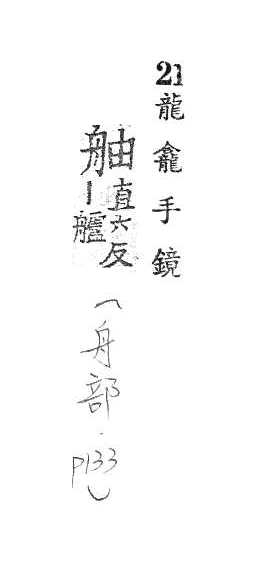 21龍龕手鏡
舳直六反丨艫(舟部.P133)